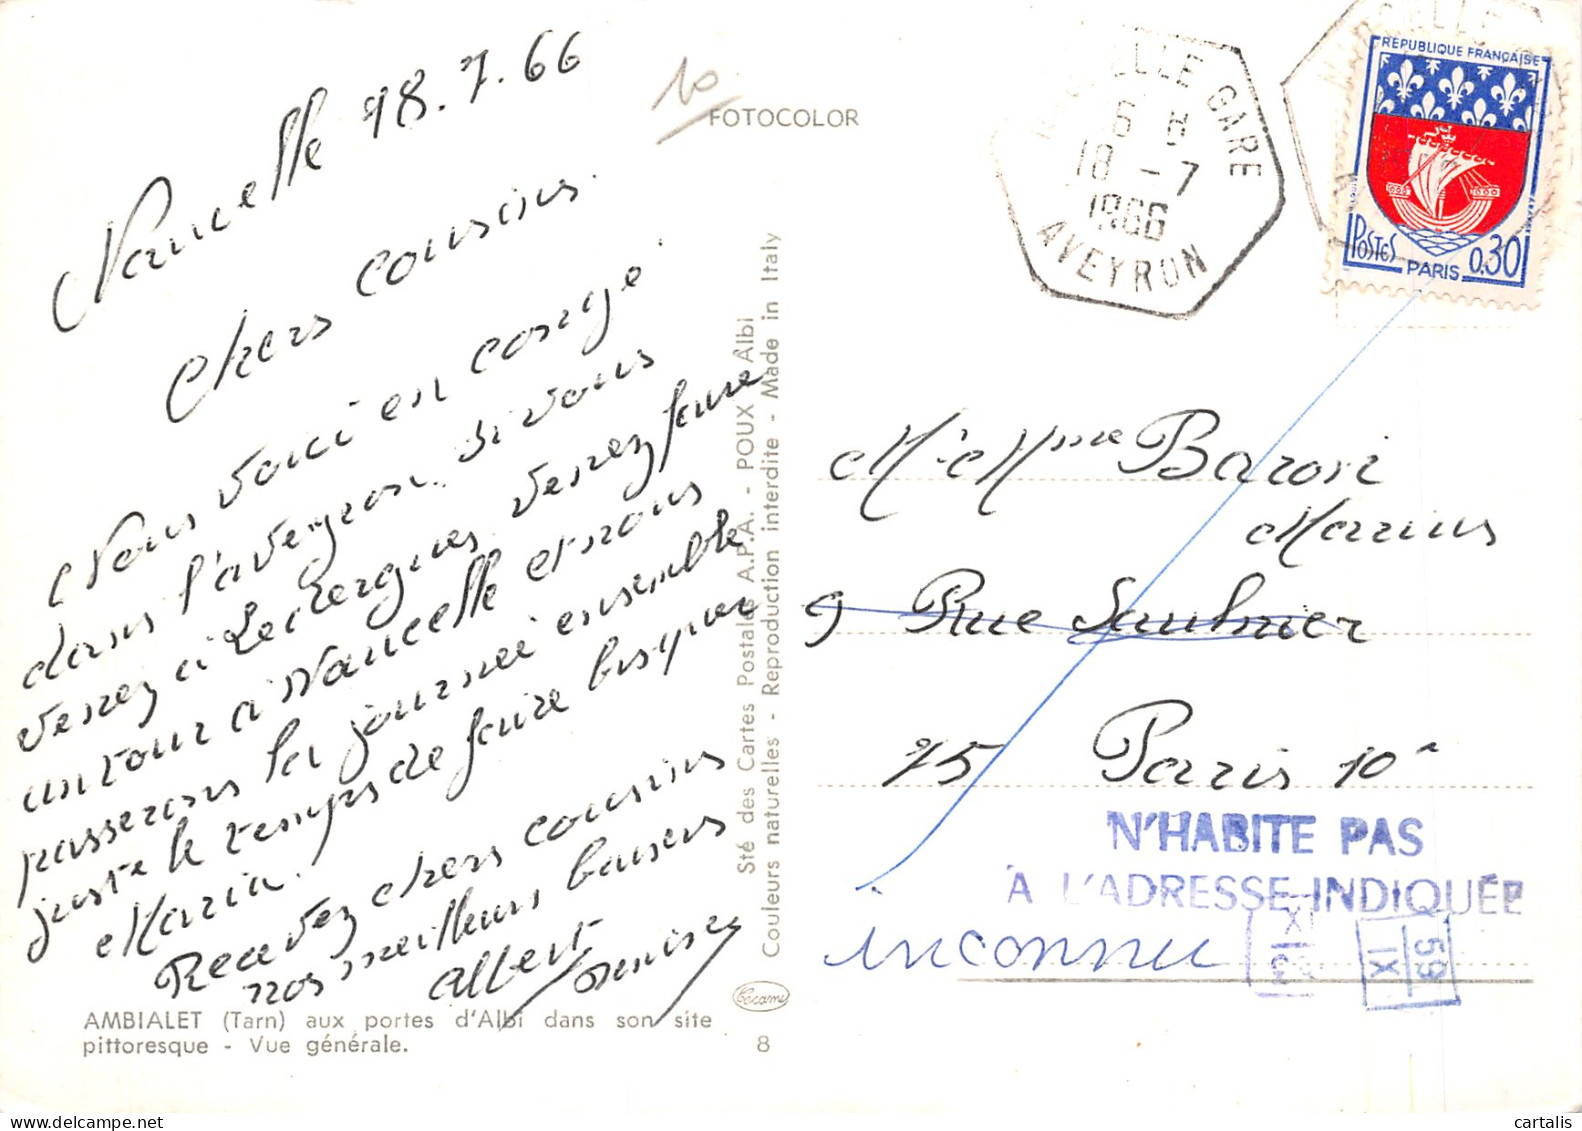 Naucelle 18.7.66
Chers cousins.
Nous voici en congé
dans l'aveyron. si vous
venez à Ledergues venez faire
un tour à Naucelle et nous
passerons la journée ensemble
juste le temps de faire bisquer
Maria.
Recevez chers cousins
nos meilleurs baisers
Albert
AMBIALET (Tarn) aux portes d'Albi dans son site
pittoresque - Vue générale.
10
FOTOCOLOR
Sté des Cartes Postales A.P.A. - POUX Albi
Couleurs naturelles - Reproduction interdite - Made in Italy
8
NAUCELLE GARE
6 H
18 -7
1966
AVEYRON
REPUBLIQUE FRANÇAISE
POSTES
PARIS
0.30
M. et Mme Baron
Marius
9 Rue Saulnier
75 Paris 10e
N'HABITE PAS
À L'ADRESSE INDIQUÉE
inconnu
59
IX
cartalis